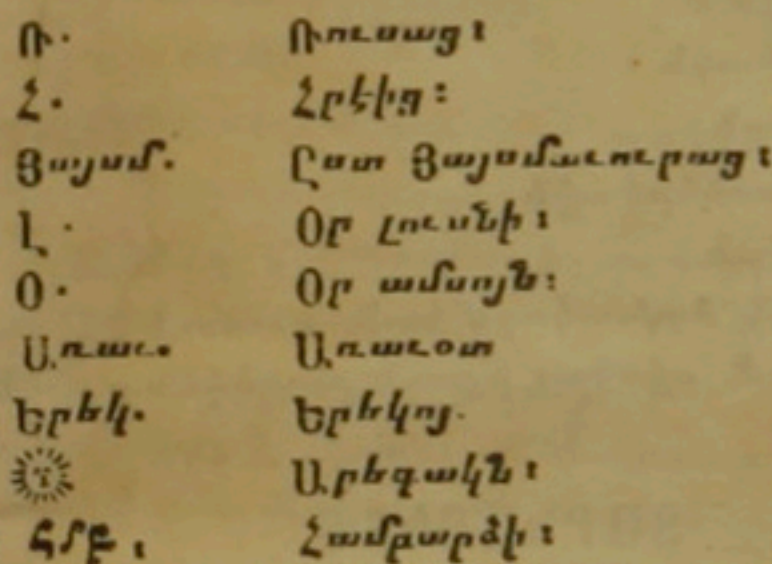 Ռ. Ռուսաց։
Հ. Հրէից։
Յայսմ. Ըստ Յայսմաւուրաց։
Լ. Օր լուսնի։
Օ. Օր ամսոյն։
Առաւ. Առաւօտ
Երեկ. Երեկոյ.
Արեգակն։
ՀՄԲ. Համբարձի։